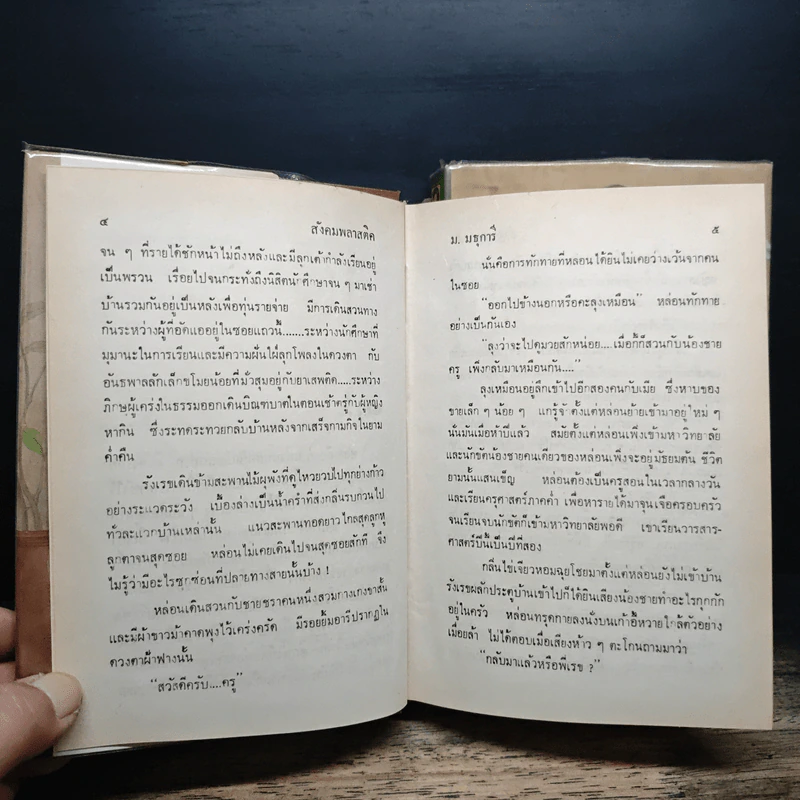 ๔
สังคมพลาสติค
จน ๆ ที่รายได้ชักหน้าไม่ถึงหลังและมีลูกเต้ากำลังเรียนอยู่
เป็นพรวน เรื่อยไปจนกระทั่งถึงนิสิตนักศึกษาจน ๆ มาเช่า
บ้านรวมกันอยู่เป็นหลังเพื่อทุ่นรายจ่าย มีการเดินสวนทาง
กันระหว่างผู้ที่อัดแออยู่ในซอยแถวนี้.......ระหว่างนักศึกษาที่
มุมานะในการเรียนและมีความฝันใฝ่ลุกโพลงในดวงตา กับ
อันธพาลลักเล็กขโมยน้อยที่มั่วสุมอยู่กับยาเสพติด.....ระหว่าง
ภิกษุผู้เคร่งในธรรมออกเดินบิณฑบาตในตอนเช้าตรู่กับผู้หญิง
หากิน ซึ่งระทดระทวยกลับบ้านหลังจากเสร็จกามกิจในยาม
ค่ำคืน
รังเรขเดินข้ามสะพานไม้ผุพังที่ดูไหวยวบไปทุกย่างก้าว
อย่างระแวดระวัง เบื้องล่างเป็นน้ำครำที่ส่งกลิ่นรบกวนไป
ทั่วละแวกบ้านเหล่านั้น แนวสะพานทอดยาวไกลสุดลูกหู
ลูกตาจนสุดซอย หล่อนไม่เคยเดินไปจนสุดซอยสักที จึง
ไม่รู้ว่ามีอะไรซุกซ่อนที่ปลายทางสายนั้นบ้าง !
หล่อนเดินสวนกับชายชราคนหนึ่งสวมกางเกงขาสั้น
และมีผ้าขาวม้าคาดพุงไว้เคร่งครัด มีรอยยิ้มอารีปรากฏใน
ดวงตาฝ้าฟางนั้น
"สวัสดีครับ....ครู"
ม. มธุการี
๕
นั่นคือการทักทายที่หล่อนได้ยินไม่เคยว่างเว้นจากคน
ในซอย
"ออกไปข้างนอกหรือคะลุงเหมือน" หล่อนทักทาย
อย่างเป็นกันเอง
"ลุงว่าจะไปดูมวยสักหน่อย....เมื่อกี้ก็สวนกับน้องชาย
ครู เพิ่งกลับมาเหมือนกัน...."
ลุงเหมือนอยู่ลึกเข้าไปอีกสองคนกับเมีย ซึ่งหาบของ
ขายเล็ก ๆ น้อย ๆ แกรู้จักตั้งแต่หล่อนย้ายเข้ามาอยู่ใหม่ ๆ
นั่นมันเมื่อห้าปีแล้ว สมัยตั้งแต่หล่อนเพิ่งเข้ามหาวิทยาลัย
และนักขัตน้องชายคนเดียวของหล่อนเพิ่งจะอยู่มัธยมต้น ชีวิต
ยามนั้นแสนเข็ญ หล่อนต้องเป็นครูสอนในเวลากลางวัน
และเรียนครุศาสตร์ภาคค่ำ เพื่อหารายได้มาจุนเจือครอบครัว
จนเรียนจบนักขัตก็เข้ามหาวิทยาลัยพอดี เขาเรียนวารสาร-
ศาสตร์ปีนี้เป็นปีที่สอง
กลิ่นไข่เจียวหอมฉุยโชยมาตั้งแต่หล่อนยังไม่เข้าบ้าน
รังเรขผลักประตูบ้านเข้าไปก็ได้ยินเสียงน้องชายทำอะไรกุกกัก
อยู่ในครัว หล่อนทรุดกายลงนั่งบนเก้าอี้หวายใกล้ตัวอย่าง
เมื่อยล้า ไม่ได้ตอบเมื่อเสียงห้าว ๆ ตะโกนถามมาว่า
"กลับมาแล้วหรือพี่เรข ?"